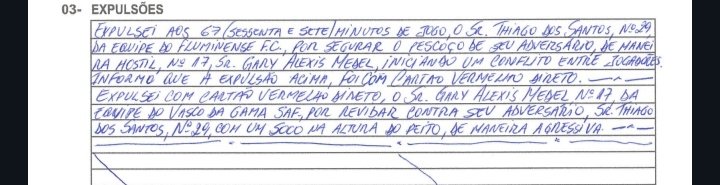 03- EXPULSÕES
EXPULSEI AOS 67/SESSENTA E SETE/MINUTOS DE JOGO, O SR. THIAGO DOS SANTOS, Nº29,
DA EQUIPE DO FLUMINENSE F.C., POR SEGURAR O PESCOÇO DE SEU ADVERSÁRIO, DE MANEI
RA HOSTIL, Nº 17, SR. GARY ALEXIS MEDEL, INICIANDO UM CONFLITO ENTRE JOGADORES.
INFORMO QUE A EXPULSÃO ACIMA, FOI COM CARTÃO VERMELHO DIRETO.
EXPULSEI COM CARTÃO VERMELHO DIRETO, O SR. GARY ALEXIS MEDEL Nº17, DA
EQUIPE DO VASCO DA GAMA SAF, POR REVIDAR CONTRA SEU ADVERSÁRIO, SR. THIAGO
DOS SANTOS, Nº29, COM UM SOCO NA ALTURA DO PEITO, DE MANEIRA AGRESSIVA.